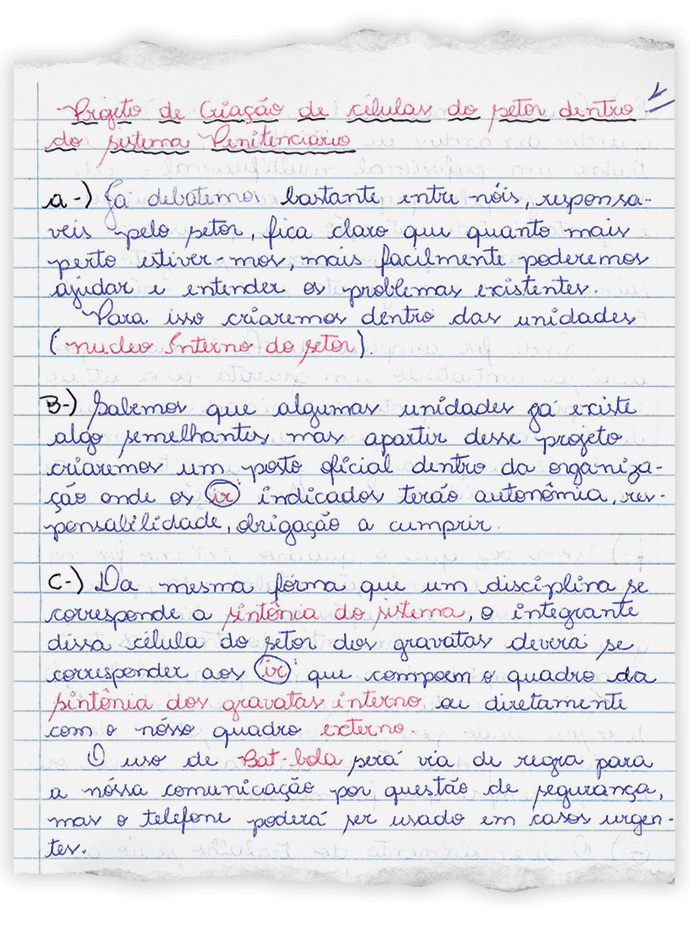 Projeto de Criação de células do setor dentro
do sistema Penitenciário
a-) Já debatemos bastante entre nóis, responsa-
veis pelo setor, fica claro que quanto mais
perto estiver-mos, mais facilmente poderemos
ajudar e entender os problemas existentes.
Para isso criaremos dentro das unidades
(nucleo Interno do setor).
B-) Sabemos que algumas unidades já existe
algo semelhantes mas apartir desse projeto
criaremos um posto oficial dentro da organiza-
ção onde os ir' indicados terão autonômia, res-
ponsabilidade, obrigação a cumprir.
C-) Da mesma forma que um disciplina se
corresponde a sintônia do sistema, o integrante
dissa célula do setor dos gravatas deverá se
corresponder aos ir' que compoem o quadro da
sintônia dos gravatas interno ou diretamente
com o nósso quadro externo.
O uso de Bat-bola será via de regra para
a nóssa comunicação por questão de segurança,
mas o telefone poderá ser usado em casos urgen-
tes.